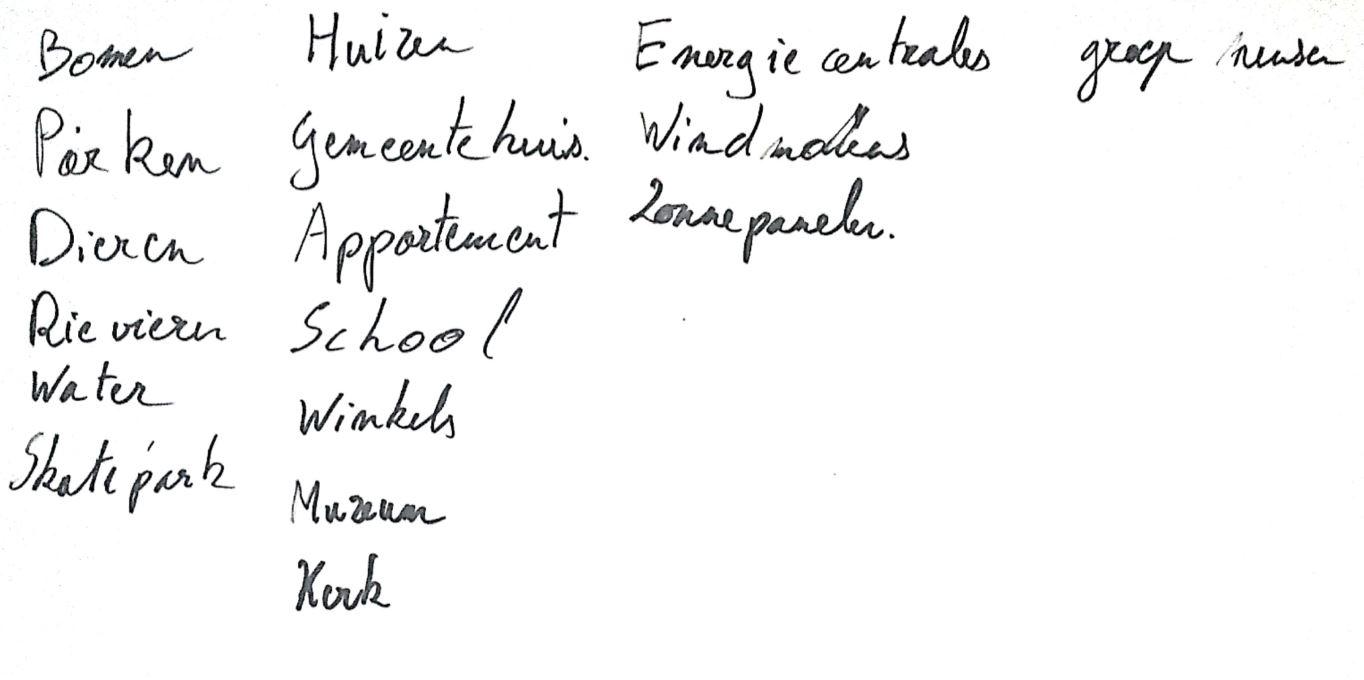 Bomen
Parken
Dieren
Rievieren
Water
Skatepark
Huizen
Gemeentehuis.
Appartement
School
Winkels
Muzeum
Kerk
Energie centrales
Windmolens
Zonnepanelen.
groep mensen